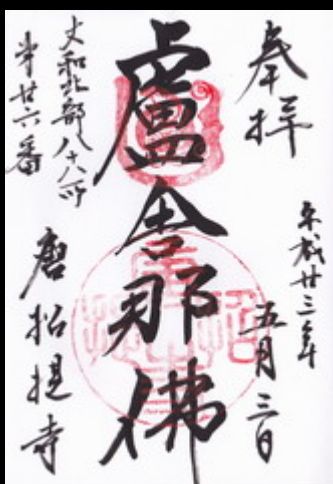 奉拝
平成廿三年
五月三日
盧舎那佛
大和北部八十八所
第廿六番
唐招提寺